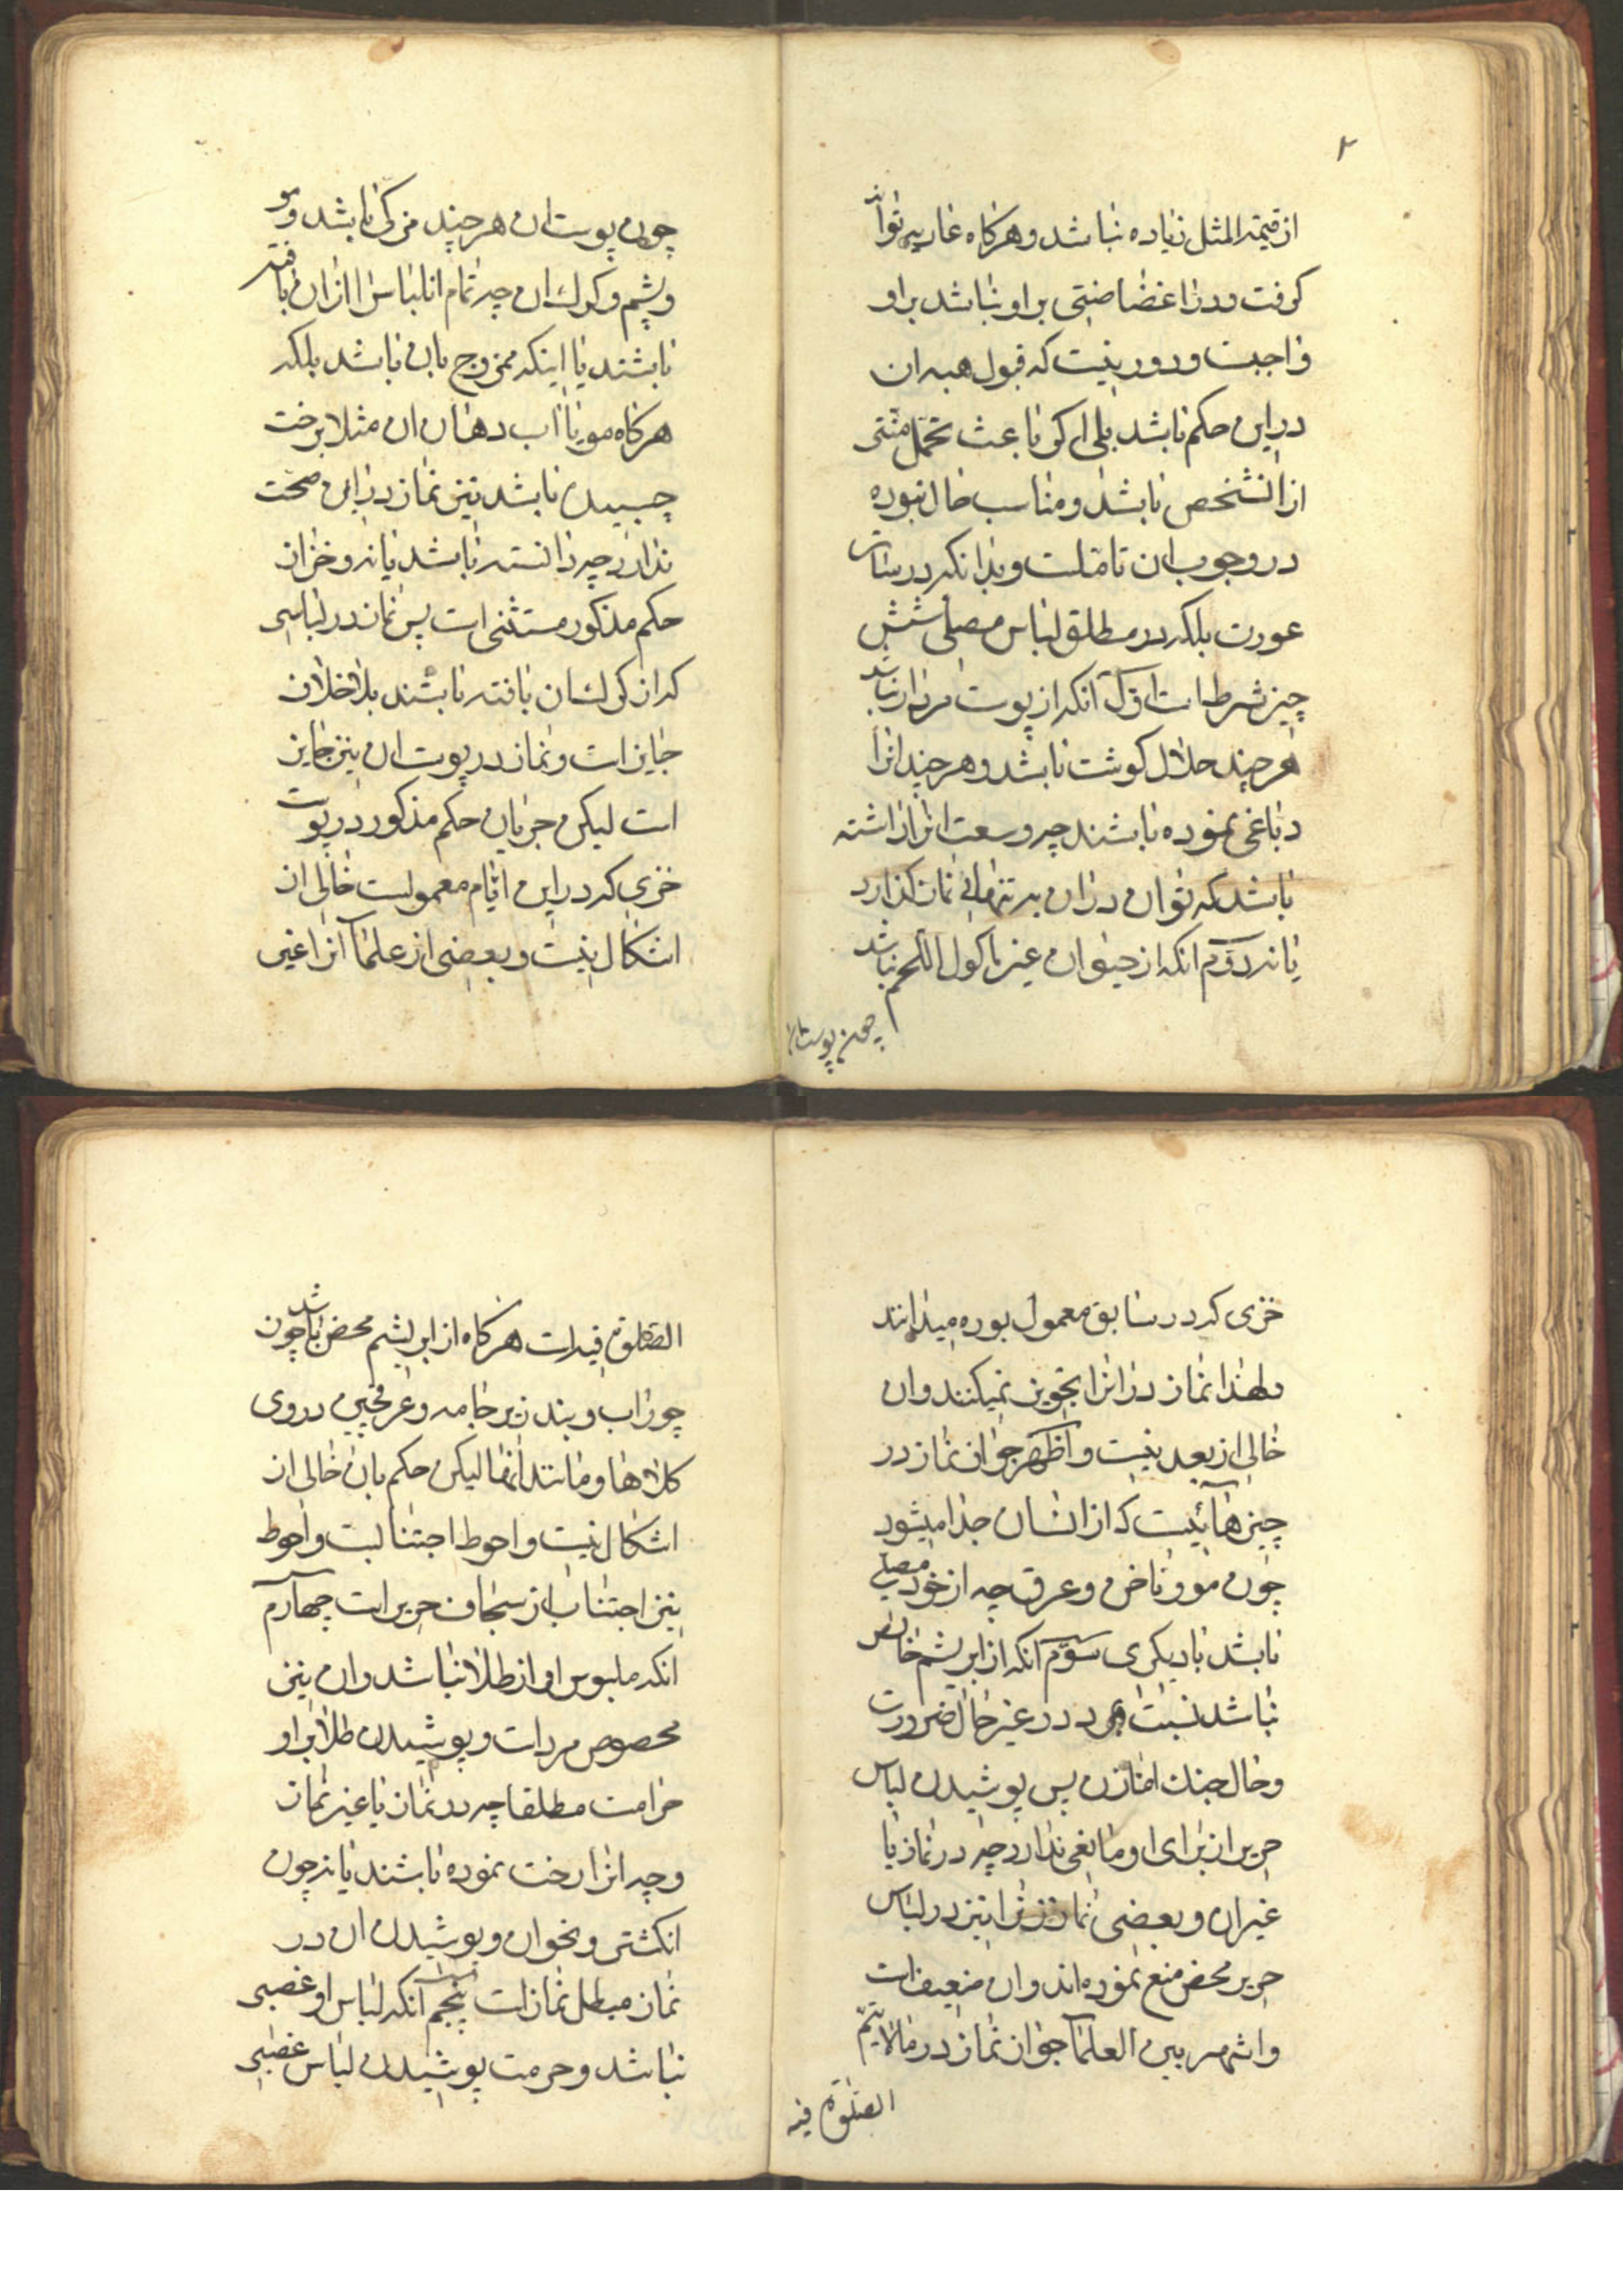 ۲
از قیمة المثل زیاده نباشد و هرکاه عاریه توان
کرفت و در آن غضاضتی بر او نباشد بر او
واجبست و دور نیست که قبول هبه ان
در این حکم باشد بلی اکر باعث تحمل منتی
از انشخص باشد و مناسب حال نبوده
در وجوب ان تاملست و بدانکه در ساتر
عورت بلکه در مطلق لباس مصلی شش
چیز شرطست اوّل آنکه از پوست مردار نباشد
هر چند حلال کوشت باشد و هر چند انرا
دباغی نموده باشند چه وسعت انرا داشته
باشد که توان در ان به تنهائی نماز کذارد
یا نه دوّم انکه از حیوان غیر ماکول اللحم نباشد
چون پوست ان
چون پوست ان هر چند مزکی باشد و مو
و پشم و کرک ان چه تمام ان لباس را از ان بافته
باشند یا اینکه ممزوج بان باشد بلکه
هرکاه مو یا اب دهان ان مثلا برخت
چسبیده باشد نیز نماز در این صحت
ندارد چه دانسته باشد یا نه و خز از
حکم مذکور مستثنی است پس نماز در لباسی
که از کرک ان بافته باشند بلاخلاف
جایز است و نماز در پوست ان نیز جایز
است لیکن جریان حکم مذکور در پوست
خزی که در این ایّام معمولست خالی از
اشکال نیست و بعضی از علمآ انرا غیر
خزی که در سابق معمول بوده میدانند
و لهذا نماز در انرا تجویز نمیکنند و ان
خالی از بعد نیست و اظهر جواز نماز در
چیزهآئیست که از انسان جدا میشود
چون مو و ناخن و عرق چه از خود مصلی
باشد یا دیکری سوّم آنکه از ابریشم خالص
نباشد نسبت بمرد در غیر حال ضرورت
و حال جنک اما زن پس پوشیدن لباس
حریر از برای او مانعی ندارد چه در نماز یا
غیر ان و بعضی نماز زن را نیز در لباس
حریر محض منع نموده اند و ان ضعیف است
و اشهر بین العلمآ جواز نماز در ما لا یتمّ
الصّلوة فیه
الصّلوة فیه است هرکاه از ابریشم محض باشد چون
جوراب و بند زیر جامه و عرقچین در روی
کلاهها و مانند انها لیکن حکم بان خالی از
اشکال نیست و احوط اجتنابست و احوط
نیز اجتناب از سجاف حریر است چهارم
انکه ملبوس او از طلا نباشد و ان نیز
مخصوص مرد است و پوشیدن طلا بر او
حرامست مطلقا چه در نماز یا غیر نماز
و چه انرا رخت نموده باشند یا نه چون
انکشتر و نحو ان و پوشیدن ان در
نماز مبطل نماز است پنجم آنکه لباس او غصبی
نباشد و حرمت پوشیدن لباس غصبی